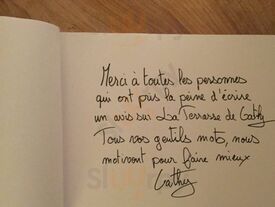 Merci à toutes les personnes
qui ont pris la peine d'écrire
un avis sur La Terrasse de Cathy
Tous vos gentils mots, nous
motivent pour faire mieux
Cathy